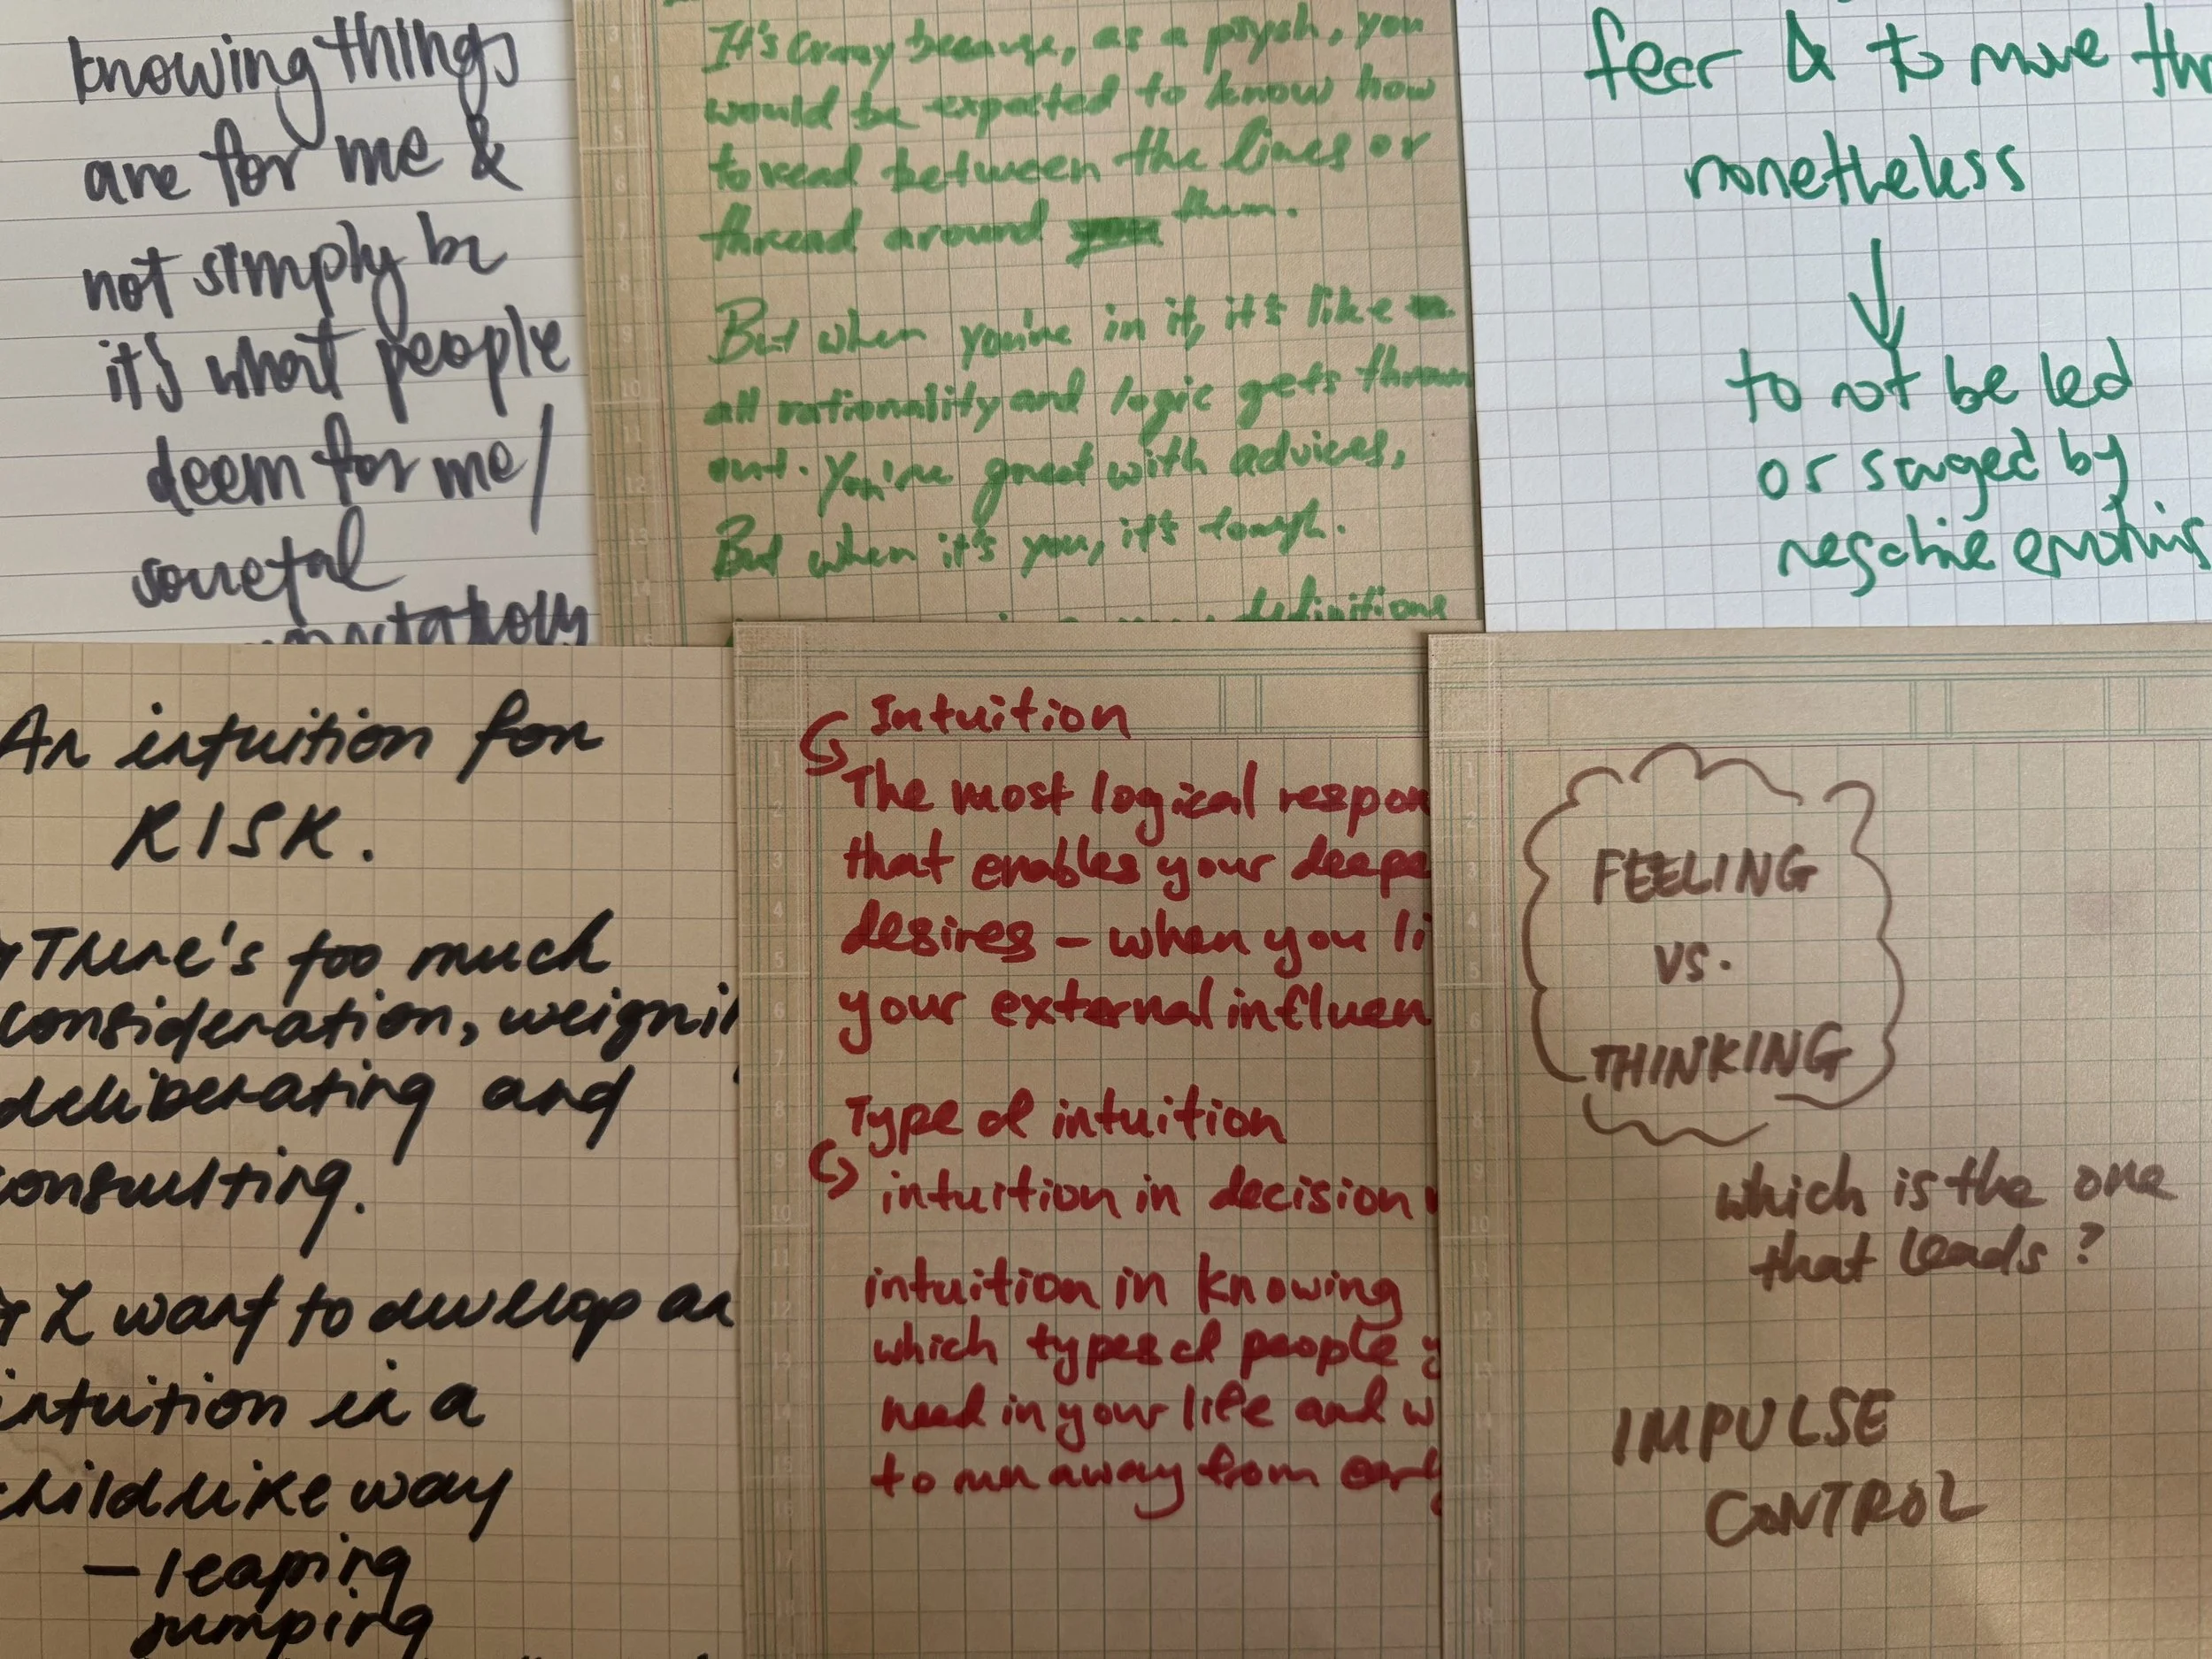 knowing things
are for me &
not simply be
it's what people
deem for me/
societal
It's crazy because, as a psych, you
would be expected to know how
to read between the lines or
thread around you them.
But when you're in it, it's like
all rationality and logic gets thrown
out. You're great with advices,
But when it's you, it's tough.
definitions
fear & to move thr
nonetheless
to not be led
or swayed by
negative emotions
An intuition for
RISK.
There's too much
consideration, weighi
deliberating and
consulting.
I want to develop an
intuition in a
childlike way
- leaping
jumping
Intuition
The most logical respon
that enables your deepe
desires - when you li
your external influen
Type of intuition
intuition in decision
intuition in knowing
which types of people y
need in your life and w
to run away from early
FEELING
VS.
THINKING
which is the one
that leads?
IMPULSE
CONTROL